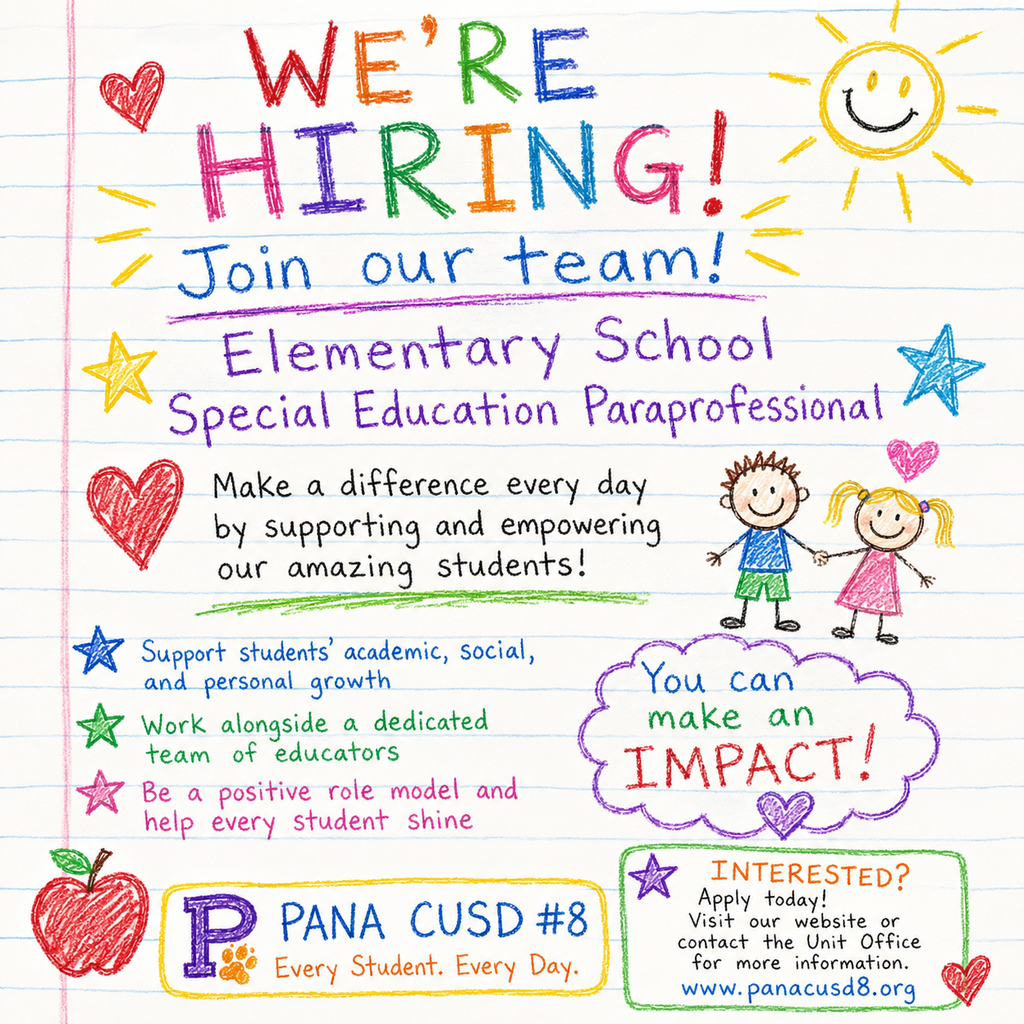 WE'RE
HIRING!
Join our team!
Elementary School
Special Education Paraprofessional
Make a difference every day
by supporting and empowering
our amazing students!
Support students' academic, social,
and personal growth
Work alongside a dedicated
team of educators
Be a positive role model and
help every student shine
You can
make an
IMPACT!
P
PANA CUSD #8
Every Student. Every Day.
INTERESTED?
Apply today!
Visit our website or
contact the Unit Office
for more information.
www.panacusd8.org